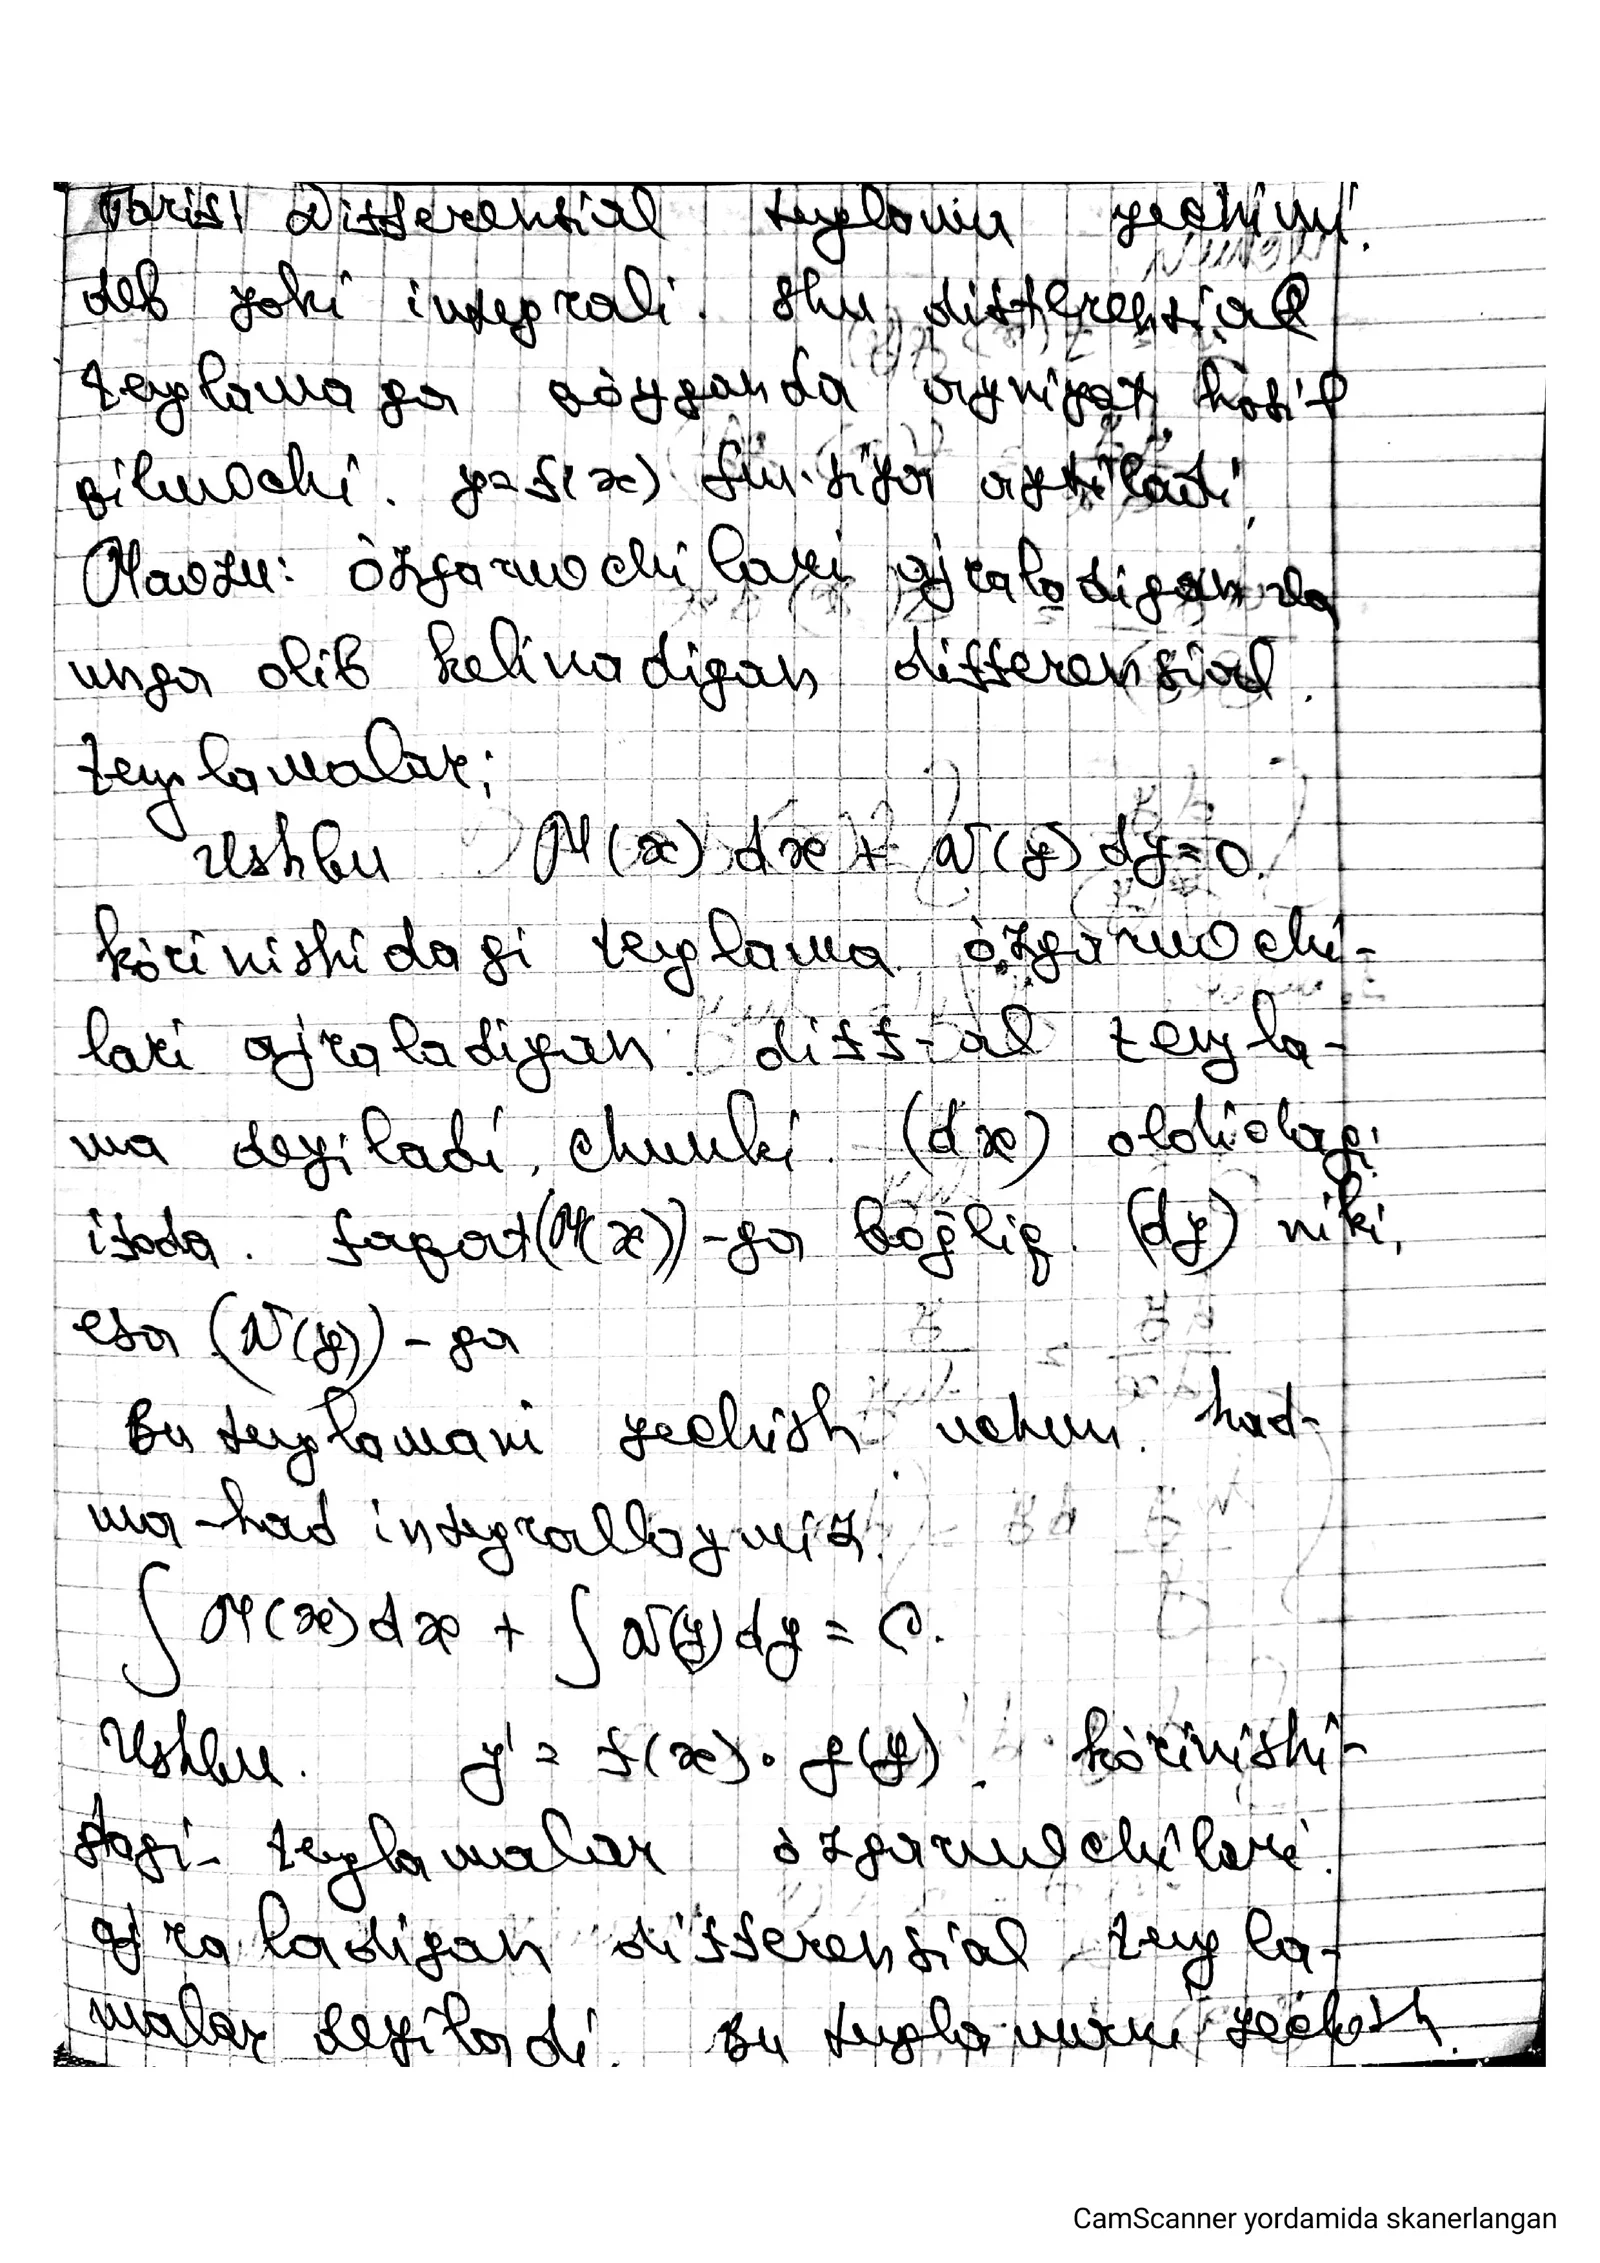 Tarif! Differensial tenglama yechimi.
deb yoki integrali. Shu differensial
tenglamaga qòyganda ayniyat hosil
qiluvchi. y=f(x) fun.siya aytiladi.
Mavzu: òzgaruvchilari ajraladigan va
unga olib kelinadigan differensial.
tenglamalar;
Ushbu M(x)dx + N(y)dy=0.
kòrinishidagi tenglama òzgaruvchi-
lari ajraladigan diff-al tengla-
ma deyiladi, chunki. (dx) oldidagi
ifoda. faqat(M(x))-ga bòg̀liq. (dy) niki,
esa (N(y))-ga
Bu tenglamani yechish uchun. had-
ma-had integrallaymiz.
∫ M(x)dx + ∫ N(y)dy = C.
Ushbu. y' = f(x)·g(y). kòrinishi-
dagi- tenglamalar òzgaruvchilari.
ajraladigan differensial tengla-
malar deyiladi. Bu tenglamani yechish.
CamScanner yordamida skanerlangan